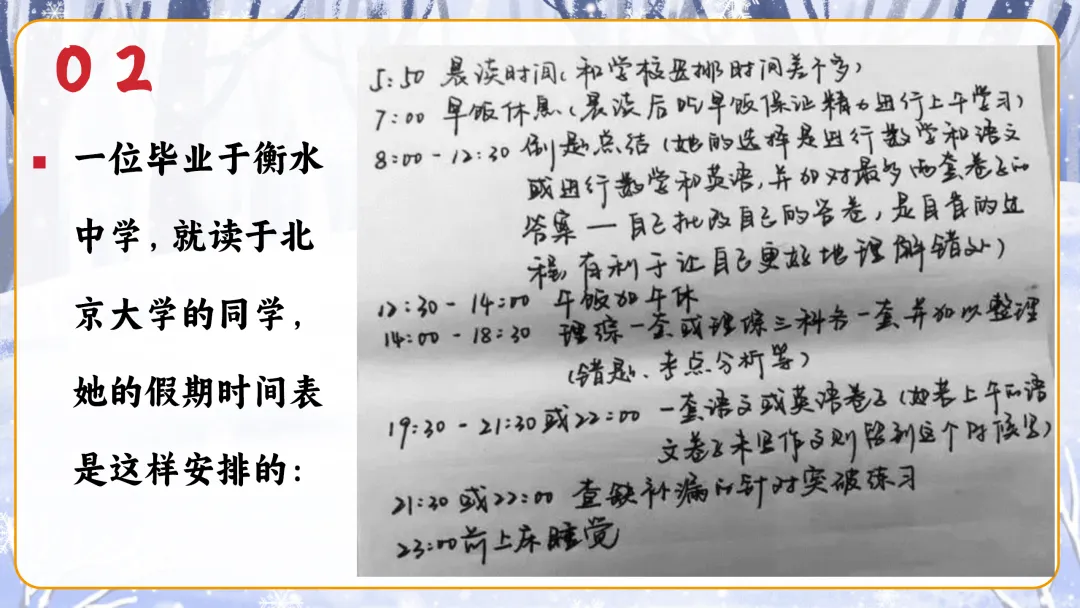 02
一位毕业于衡水
中学，就读于北
京大学的同学，
她的假期时间表
是这样安排的：
5:50 晨读时间（和学校安排时间差不多）
7:00 早饭休息（晨读后吃早饭保证精力进行上午学习）
8:00-12:30 刷题总结（她的选择是进行数学和语文
或进行数学和英语，并加对最多两套卷子的
答案—自己批改自己的答卷，是自省的过
程，有利于让自己更好地理解错处）
12:30-14:00 午饭加午休
14:00-18:30 理综一套或理综三科各一套并加以整理
（错题、考点分析等）
19:30-21:30或22:00 一套语文或英语卷子（如若上午的语
文卷子未写作文则留到这个时候写）
21:30或22:00 查缺补漏的针对突破练习
23:00前上床睡觉